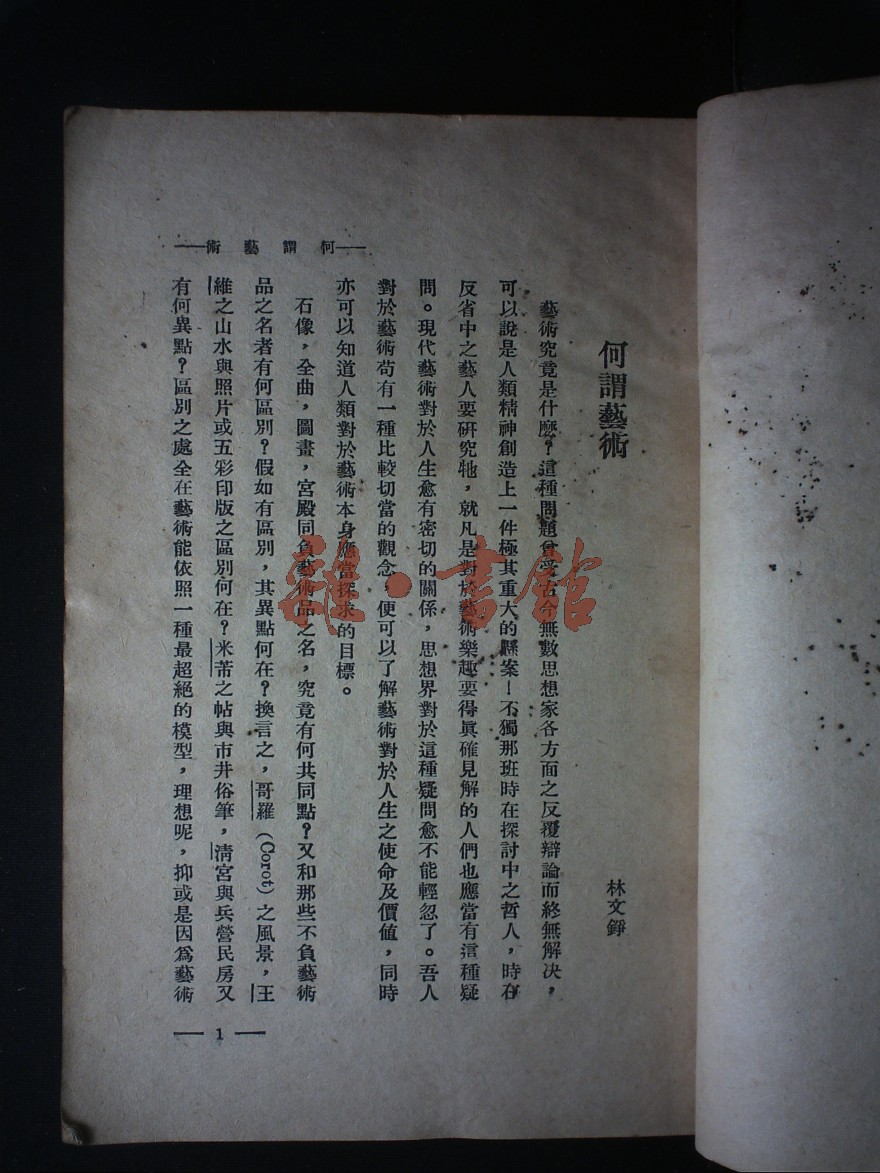 何謂藝術
何謂藝術
林文錚
藝術究竟是什麼？這種問題曾受古今無數思想家各方面之反覆辯論而終無解決，
可以說是人類精神創造上一件極其重大的懸案！不獨那班時在探討中之哲人，時在
反省中之藝人要研究牠，就凡是對於藝術樂趣要得眞確見解的人們也應當有這種疑
問。現代藝術對於人生愈有密切的關係，思想界對於這種疑問愈不能輕忽了。吾人
對於藝術苟有一種比較切當的觀念，便可以了解藝術對於人生之使命及價値，同時
亦可以知道人類對於藝術本身應當探求的目標。
石像，全曲，圖畫，宮殿同負藝術品之名，究竟有何共同點？又和那些不負藝術
品之名者有何區別？假如有區別，其異點何在？換言之，哥羅（Corot）之風景，王
維之山水與照片或五彩印版之區別何在？米芾之帖與市井俗筆，淸宮與兵營民房又
有何異點？區別之處全在藝術能依照一種最超絕的模型，理想呢，抑或是因爲藝術
1
雜·書館